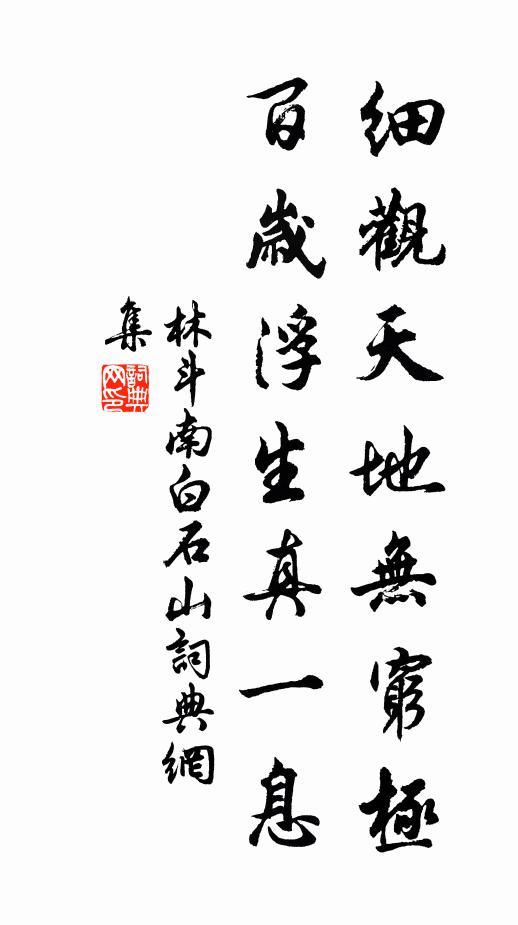 細觀天地無窮極
百歲浮生真一息
林斗南白石山詞典網
集
詞典
网印